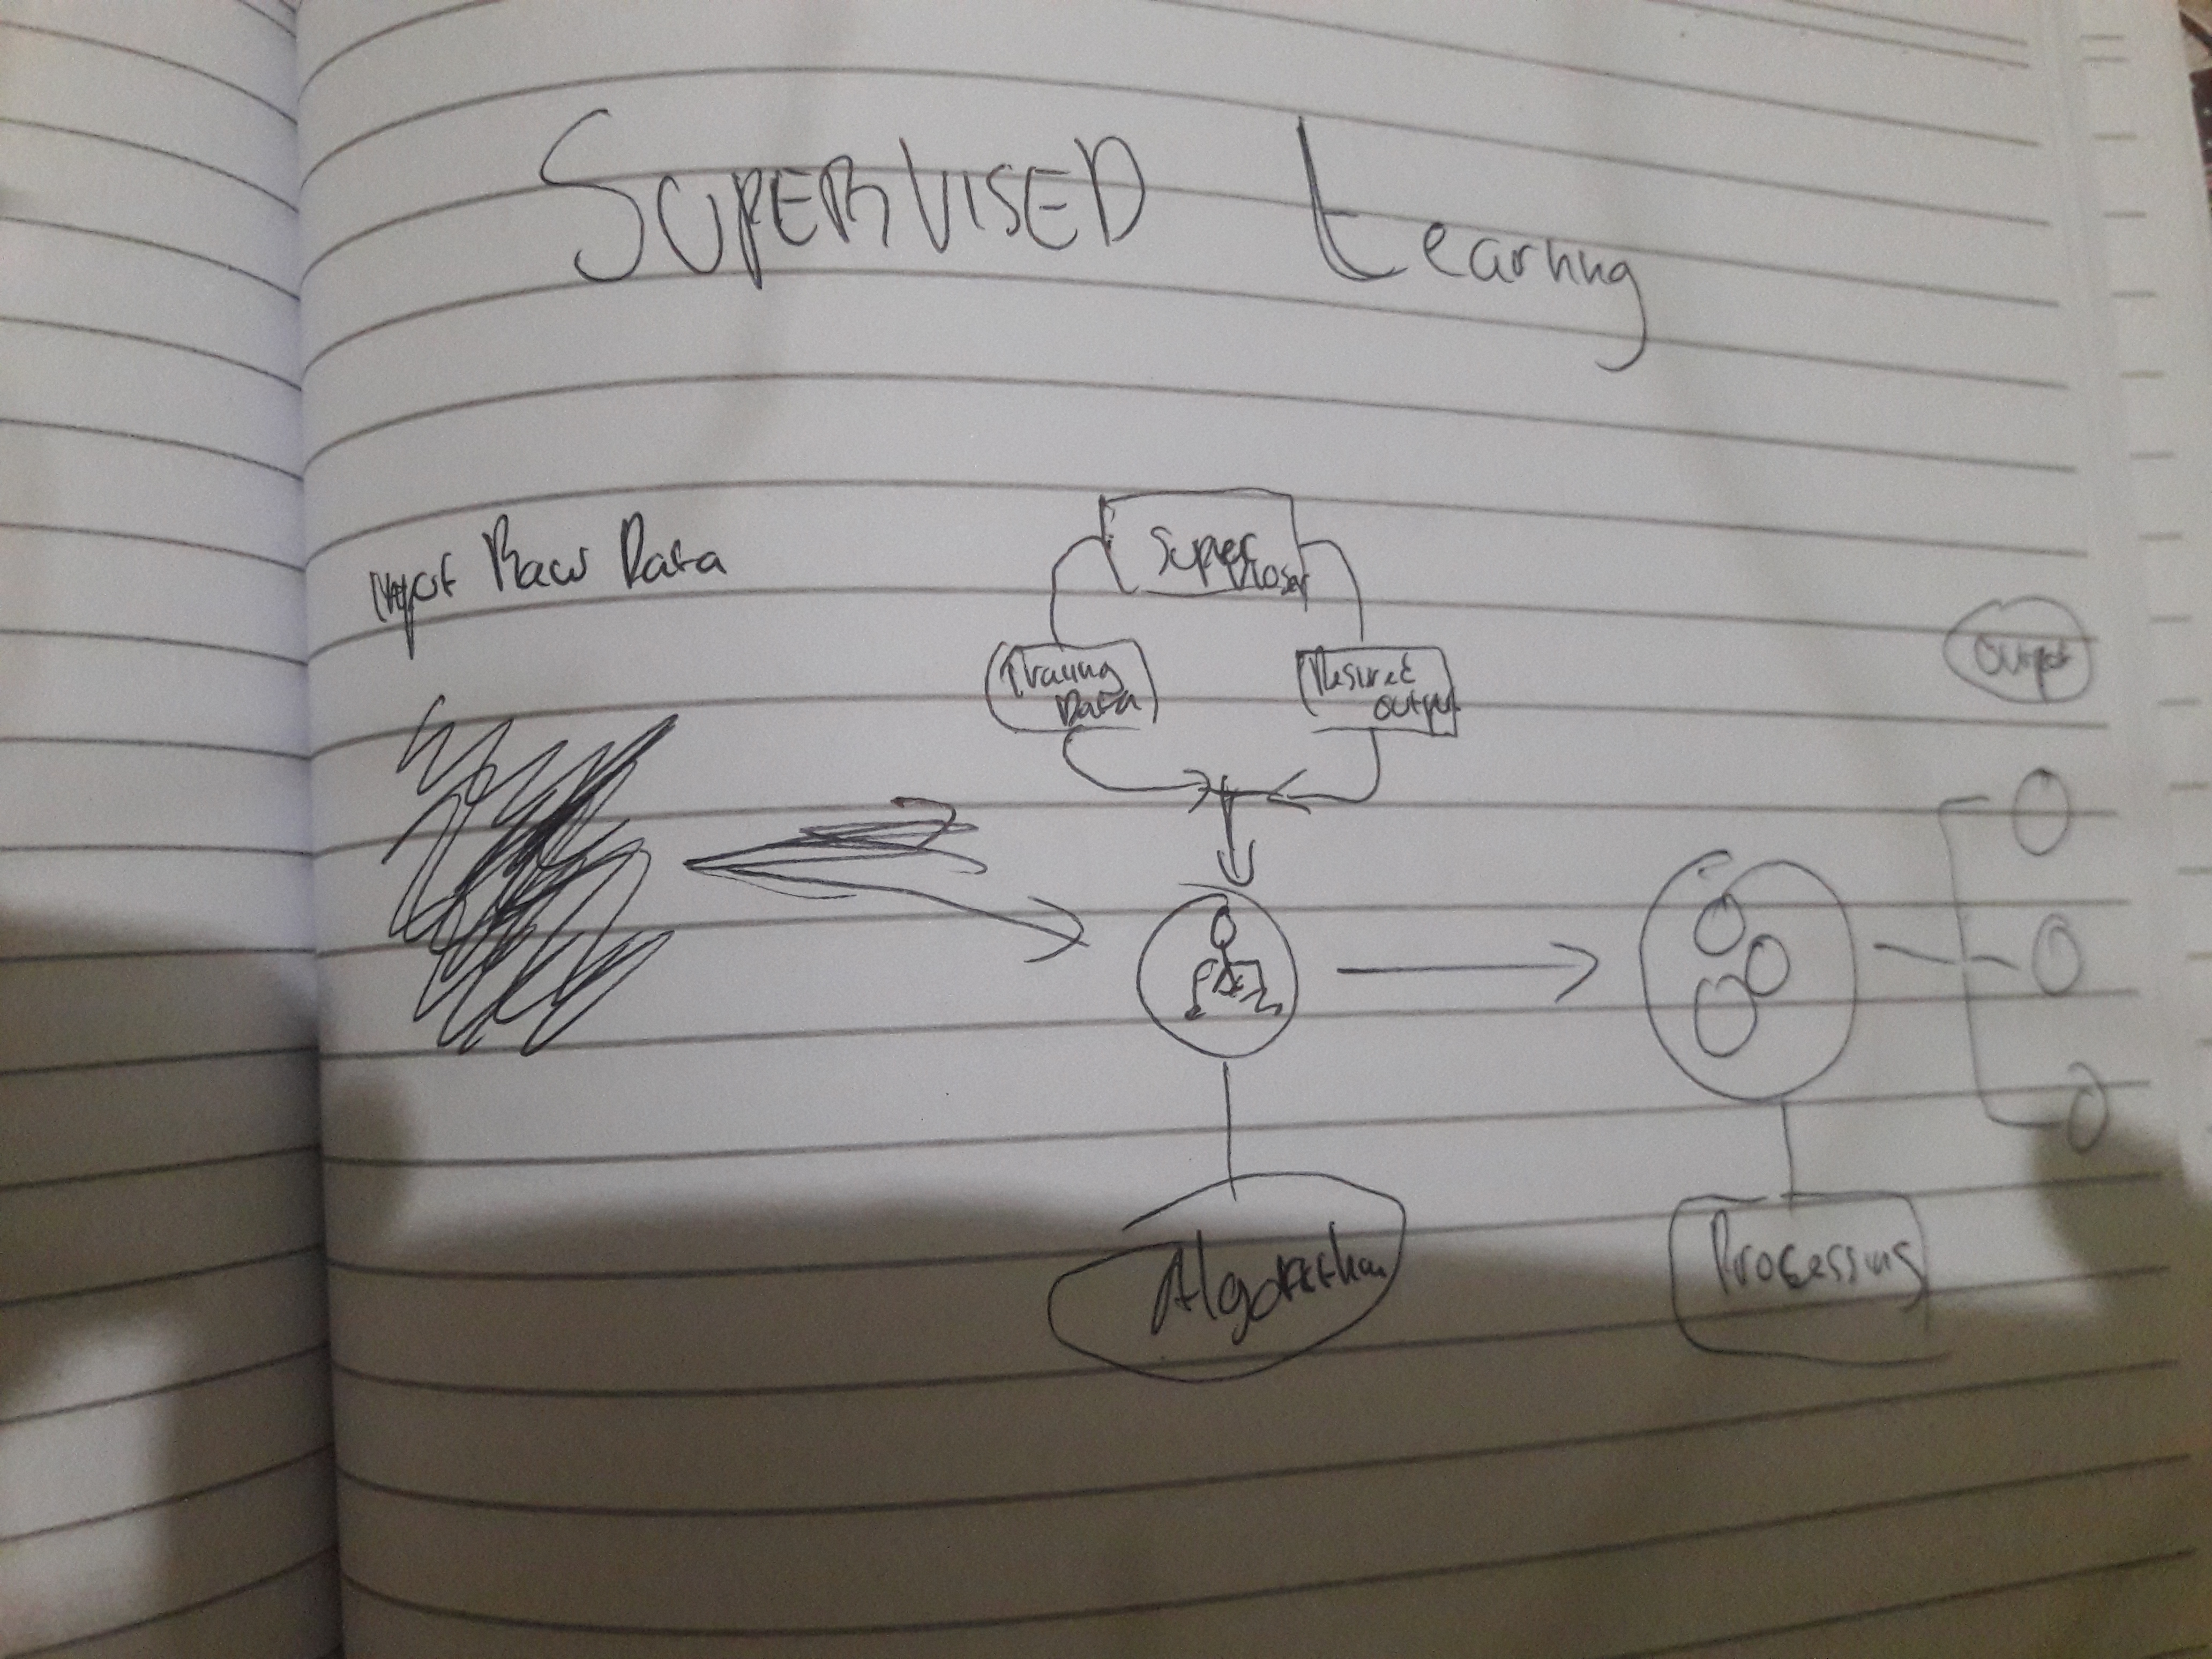 SUPERVISED Learning
Input Raw Data
Supervisor
Training
Data
Desired
output
Output
Algorithm
Processing